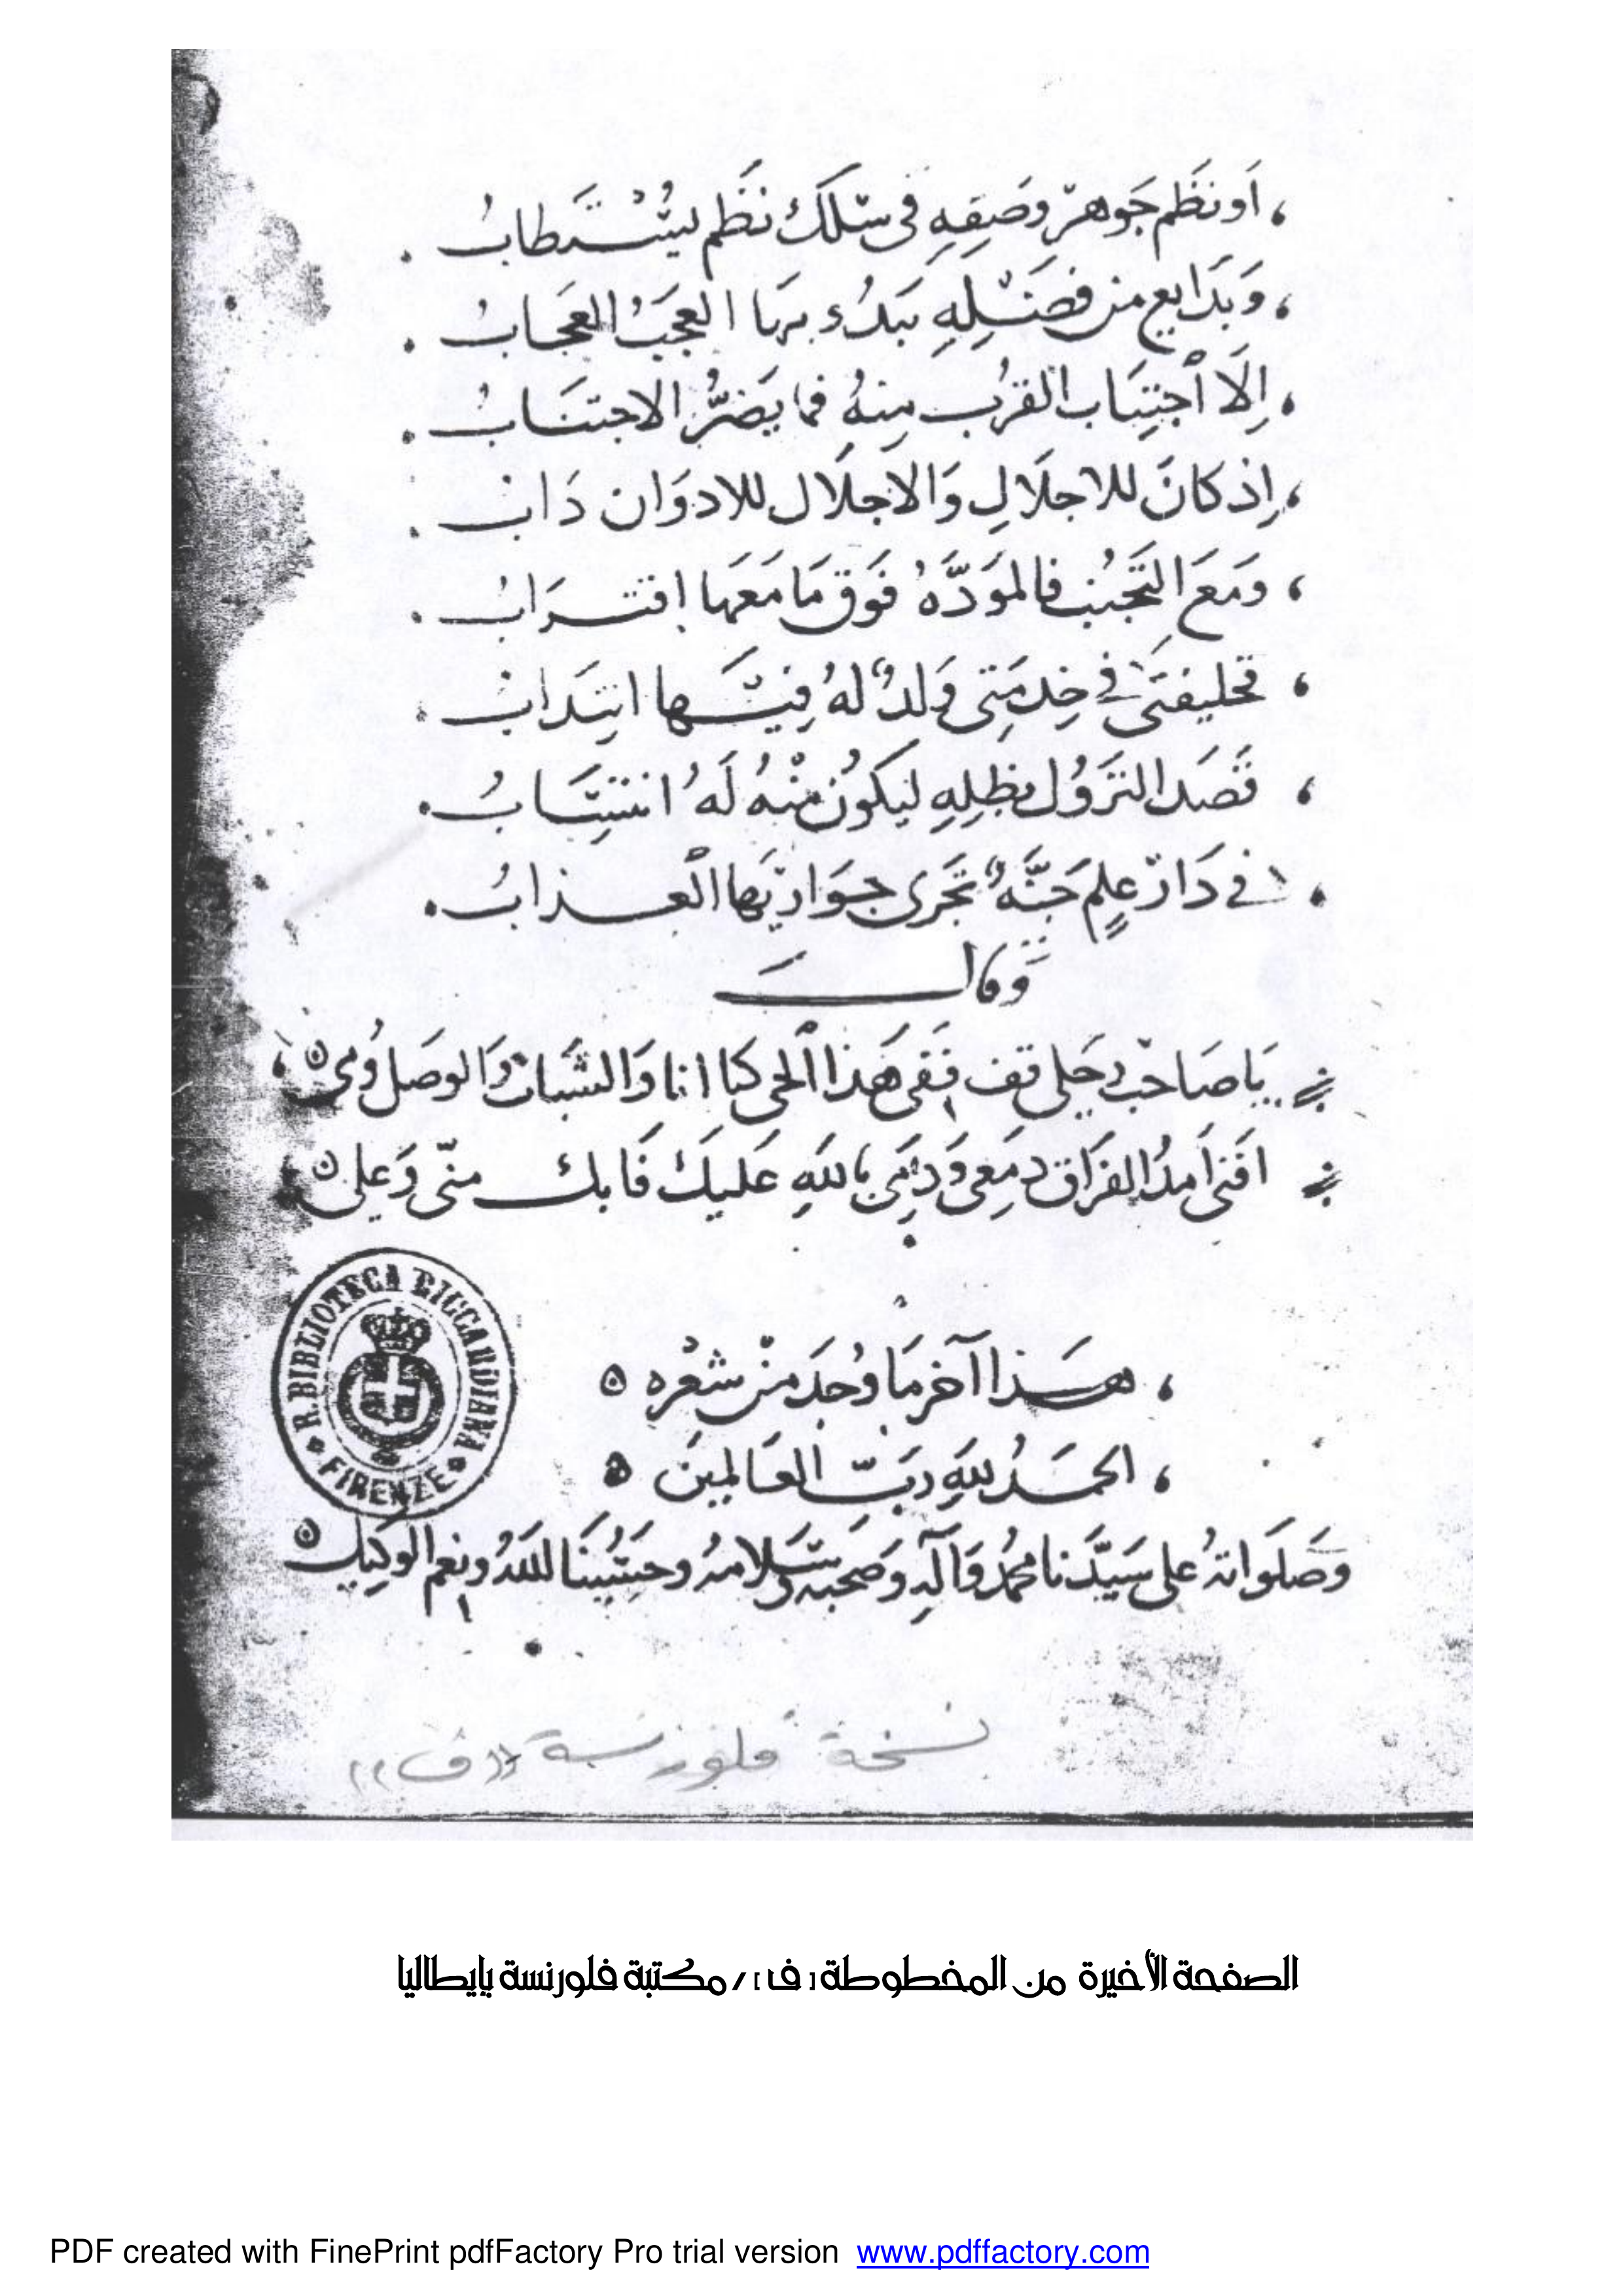 ، أو نظم جوهر وصفه في سلك نظم يستطاب .
، وبدايع من فضله يبدو بها العجب العجاب .
، إلا اجتناب القرب منه فما يضر الاجتناب .
، إذ كان للاجلال والاجلال للادوان داب .
، ومع التجنب فالمودة فوق ما معها اقتراب .
، فخليفتي في خدمتي ولد له فيها انتداب .
، قصد النزول بظله ليكون منه له انتساب .
، في دار علم جنة تجري جواريها العذاب .
وقال
يا صاحب رحلي قف ففي هذا الحي كنا انا والشباب والوصل ومي
افنى امد الفراق دمعي ودمي بالله عليك فابك مني وعلي
، هذا آخر ما وجد من شعره ه
، الحمد لله رب العالمين ه
وصلواته على سيدنا محمد وآله وصحبه وسلامه وحسبنا الله ونعم الوكيل ه
R. BIBLIOTECA RICCARDIANA
FIRENZE
نسخة فلورنسة ((ف))
الصفحة الأخيرة من المخطوطة [ ف ] / مكتبة فلورنسة بإيطاليا
PDF created with FinePrint pdfFactory Pro trial version www.pdffactory.com